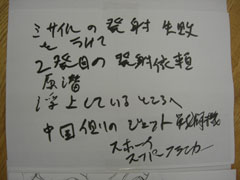 ミサイルの発射 失敗
をうけて
2発目の発射依頼
原潜
浮上しているところへ
中国側のジェット戦闘機
スホーイ
スーパーフランカー